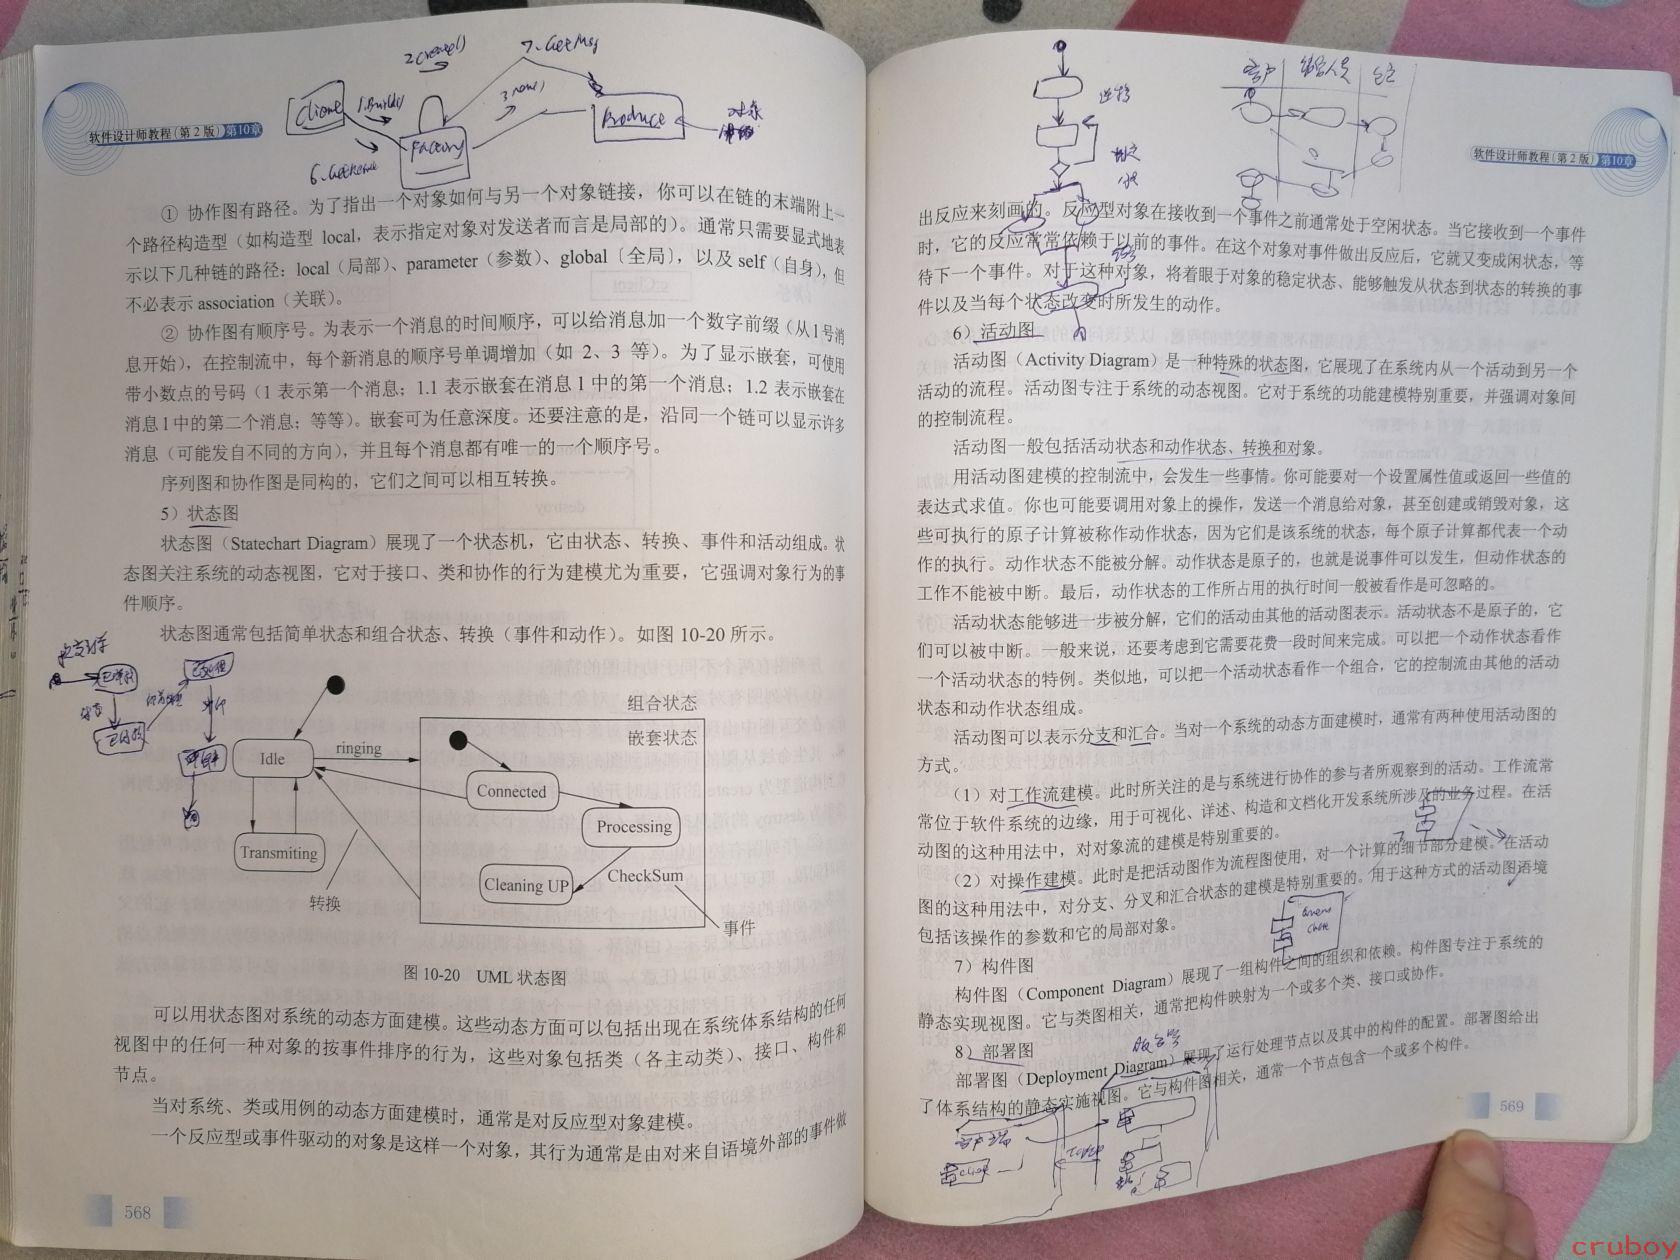 软件设计师教程（第 2 版）第10章
2.create()
7.GetMsg
Client
1.Build()
3.new()
Produce
Factory
对象
① 协作图有路径。为了指出一个对象如何与另一个对象链接，你可以在链的末端附上一
个路径构造型（如构造型 local，表示指定对象对发送者而言是局部的）。通常只需要显式地表
示以下几种链的路径：local（局部）、parameter（参数）、global〔全局〕，以及 self（自身），但
不必表示 association（关联）。
② 协作图有顺序号。为表示一个消息的时间顺序，可以给消息加一个数字前缀（从1号消
息开始），在控制流中，每个新消息的顺序号单调增加（如 2、3 等）。为了显示嵌套，可使用
带小数点的号码（1 表示第一个消息；1.1 表示嵌套在消息 1 中的第一个消息；1.2 表示嵌套在
消息 1 中的第二个消息；等等）。嵌套可为任意深度。还要注意的是，沿同一个链可以显示许多
消息（可能发自不同的方向），并且每个消息都有唯一的一个顺序号。
序列图和协作图是同构的，它们之间可以相互转换。
5）状态图
状态图（Statechart Diagram）展现了一个状态机，它由状态、转换、事件和活动组成。状
态图关注系统的动态视图，它对于接口、类和协作的行为建模尤为重要，它强调对象行为的事
件顺序。
状态图通常包括简单状态和组合状态、转换（事件和动作）。如图 10-20 所示。
组合状态
嵌套状态
Idle
ringing
Connected
Processing
Transmiting
Cleaning UP
CheckSum
转换
事件
图 10-20 UML 状态图
可以用状态图对系统的动态方面建模。这些动态方面可以包括出现在系统体系结构的任何
视图中的任何一种对象的按事件排序的行为，这些对象包括类（各主动类）、接口、构件和
节点。
当对系统、类或用例的动态方面建模时，通常是对反应型对象建模。
一个反应型或事件驱动的对象是这样一个对象，其行为通常是由对来自语境外部的事件做
568
客户
软件设计师教程（第 2 版）第10章
出反应来刻画的。反应型对象在接收到一个事件之前通常处于空闲状态。当它接收到一个事件
时，它的反应常常依赖于以前的事件。在这个对象对事件做出反应后，它就又变成闲状态，等
待下一个事件。对于这种对象，将着眼于对象的稳定状态、能够触发从状态到状态的转换的事
件以及当每个状态改变时所发生的动作。
6）活动图
活动图（Activity Diagram）是一种特殊的状态图，它展现了在系统内从一个活动到另一个
活动的流程。活动图专注于系统的动态视图。它对于系统的功能建模特别重要，并强调对象间
的控制流程。
活动图一般包括活动状态和动作状态、转换和对象。
用活动图建模的控制流中，会发生一些事情。你可能要对一个设置属性值或返回一些值的
表达式求值。你也可能要调用对象上的操作，发送一个消息给对象，甚至创建或销毁对象，这
些可执行的原子计算被称作动作状态，因为它们是该系统的状态，每个原子计算都代表一个动
作的执行。动作状态不能被分解。动作状态是原子的，也就是说事件可以发生，但动作状态的
工作不能被中断。最后，动作状态的工作所占用的执行时间一般被看作是可忽略的。
活动状态能够进一步被分解，它们的活动由其他的活动图表示。活动状态不是原子的，它
们可以被中断。一般来说，还要考虑到它需要花费一段时间来完成。可以把一个动作状态看作
一个活动状态的特例。类似地，可以把一个活动状态看作一个组合，它的控制流由其他的活动
状态和动作状态组成。
活动图可以表示分支和汇合。当对一个系统的动态方面建模时，通常有两种使用活动图的
方式。
（1）对工作流建模。此时所关注的是与系统进行协作的参与者所观察到的活动。工作流常
常位于软件系统的边缘，用于可视化、详述、构造和文档化开发系统所涉及的业务过程。在活
动图的这种用法中，对对象流的建模是特别重要的。
（2）对操作建模。此时是把活动图作为流程图使用，对一个计算的细节部分建模。在活动
图的这种用法中，对分支、分叉和汇合状态的建模是特别重要的。用于这种方式的活动图语境
包括该操作的参数和它的局部对象。
7）构件图
构件图（Component Diagram）展现了一组构件之间的组织和依赖。构件图专注于系统的
静态实现视图。它与类图相关，通常把构件映射为一个或多个类、接口或协作。
8）部署图
部署图（Deployment Diagram）展现了运行处理节点以及其中的构件的配置。部署图给出
了体系结构的静态实施视图。它与构件图相关，通常一个节点包含一个或多个构件。
服务器
569
客户端
Client
TCP/IP
cruboy